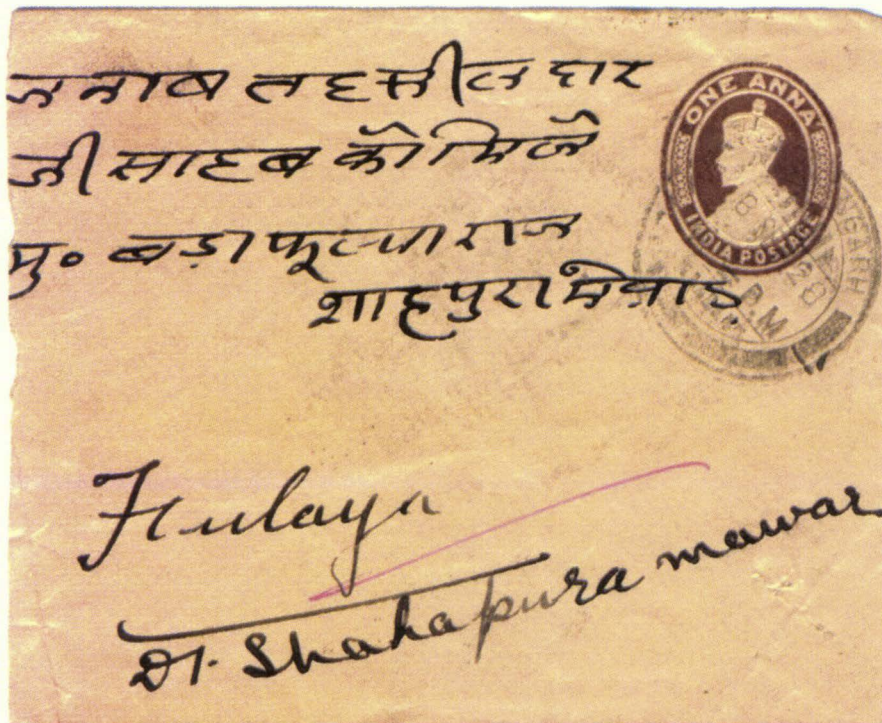 जनाब तहसील दार
जी साहब को मिले
मु॰ बड़ा फूल्या राज
शाहपुरा मेवाड़
ONE ANNA
INDIA POSTAGE
GARH
P.M
28
Fulaya
Dt. Shahapura mawar